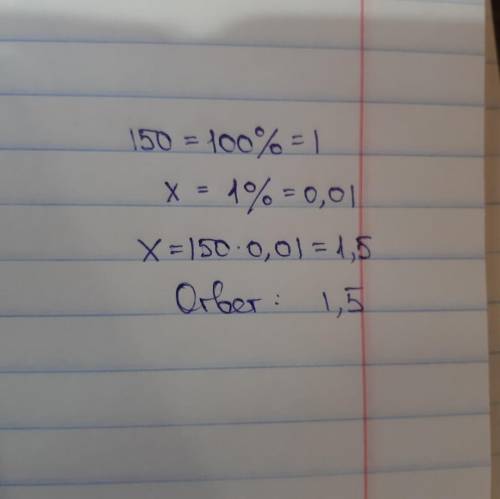 150 = 100% = 1
x = 1% = 0,01
x = 150 · 0,01 = 1,5
Ответ: 1,5